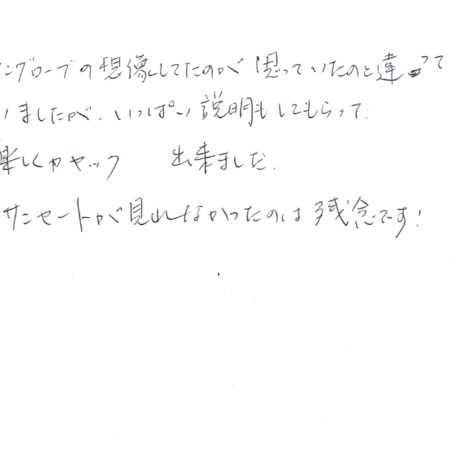 ングローブの想像してたのが思っていたのと違って
いましたが、いっぱい説明もしてもらって
楽しくカヤック 出来ました。
サンセートが見れなかったのは残念です!